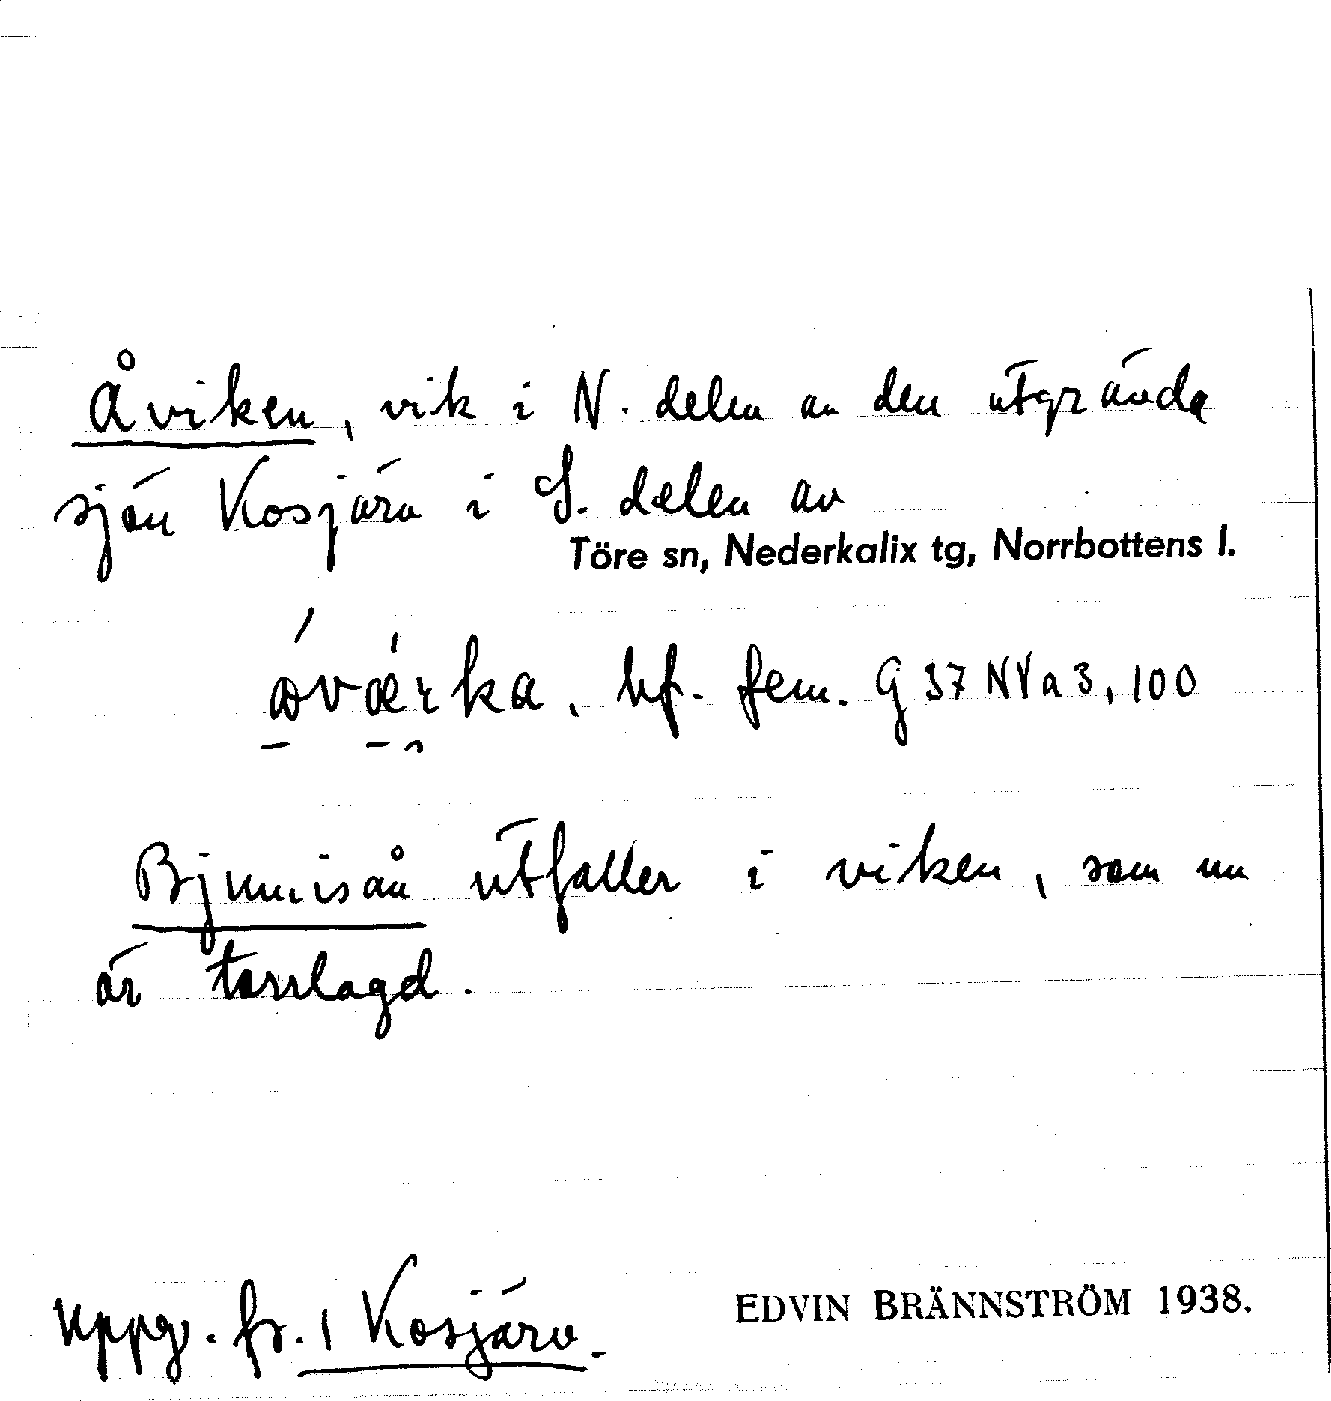 Åviken, vik i N. delen av den utgrävda
sjön Kosjärv i S. delen av
Töre sn, Nederkalix tg, Norrbottens l.
bf. fem. G 37 NYa 3, 100
utfaller i viken, som nu
är torrlagd.
Uppg. fr. 1 Kosjärv.
EDVIN BRÄNNSTRÖM 1938.